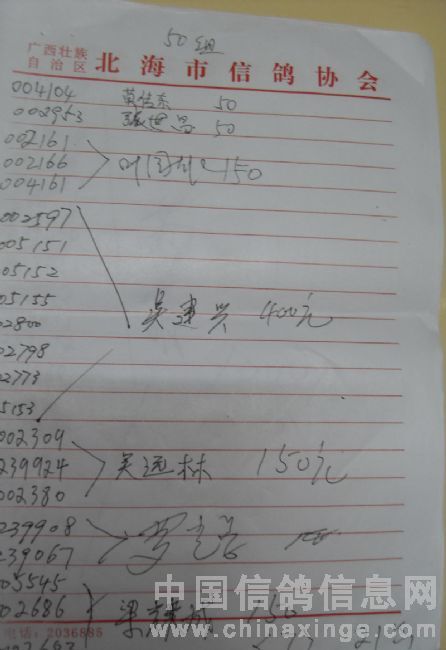 50组
广西壮族
自治区 北海市信鸽协会
004104 莫传东 50
002953 张世昌 50
002161
002166 150
004161
002597
005151
05152
05155
02800 吴建兴 400元
02798
02773
5153
002309
239924 吴远林 150元
002380
239908
239067
005545
02686 梁 诚 150
电话：2036885
中国信鸽信息网
www.chinaxinge.com